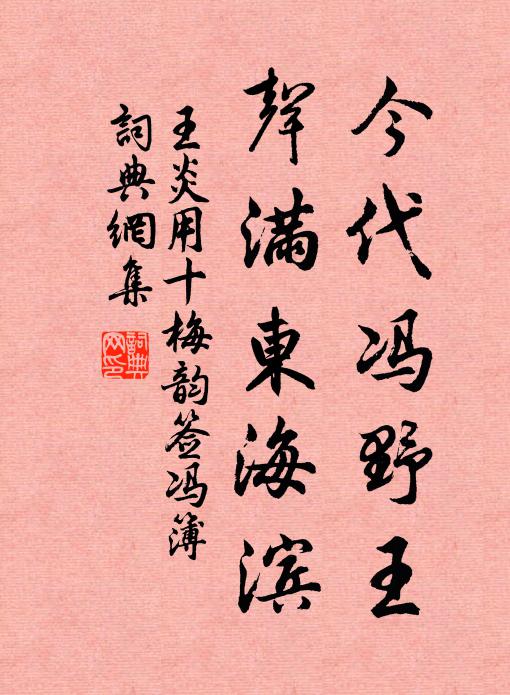 今代冯野王
聲满東海滨
王炎用十梅韵签冯簿
詞典網集
詞典网印